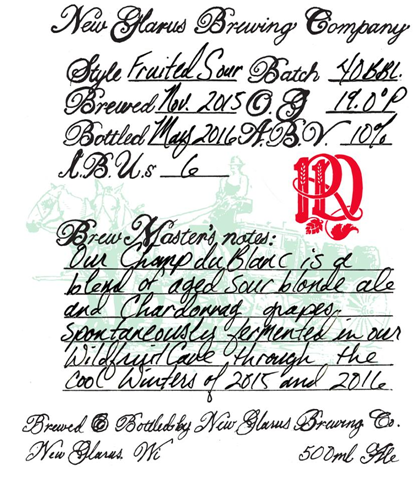 New Glarus Brewing Company
Style Fruited Sour Batch 40BBL.
Brewed Nov. 2015 O.G 19.0°P
Bottled May 2016 A.B.V. 10%
I.B.U.s 6
Brew Master's notes:
Our Champ du Blanc is a
blend of aged sour blonde ale
and Chardonnay grapes.
Spontaneously fermented in our
Wildfruit Cave through the
Cool Winters of 2015 and 2016
Brewed & Bottled by New Glarus Brewing Co.
New Glarus. Wi 500ml Ale